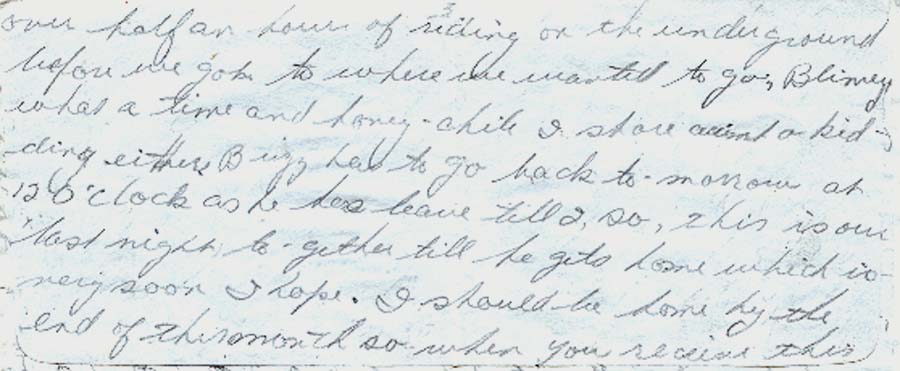 over half an hour of riding on the underground
before we got to where we wanted to go, Blimey
what a time and honey-chile I shore aimt a kid-
ding either, Buzz has to go back to-morrow at
12 O'clock as he has leave till 2, so, this is our
last night to-gether till he gets home which is
very soon I hope. I should be home by the
end of this month so when you receive this